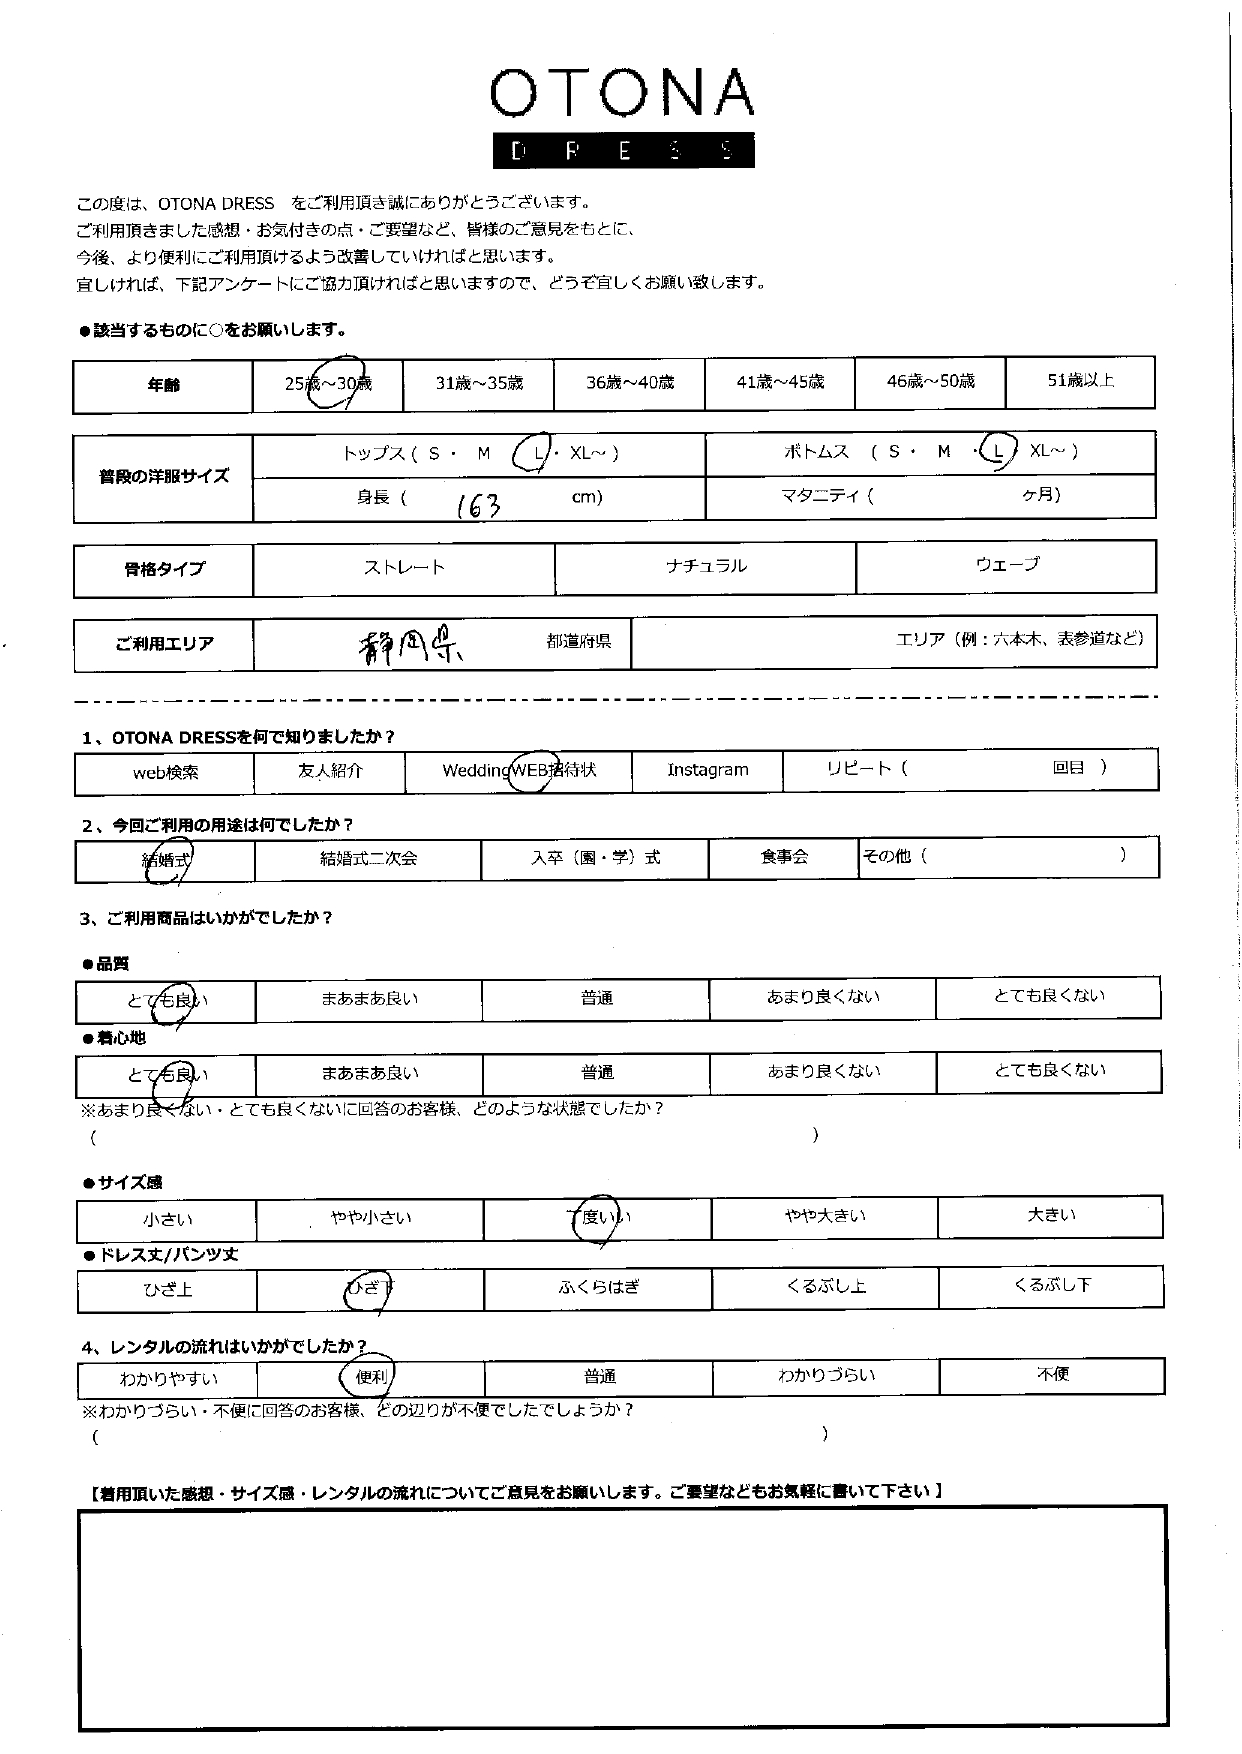 OTONA
DRESS
この度は、OTONA DRESS　をご利用頂き誠にありがとうございます。
ご利用頂きました感想・お気付きの点・ご要望など、皆様のご意見をもとに、
今後、より便利にご利用頂けるよう改善していければと思います。
宜しければ、下記アンケートにご協力頂ければと思いますので、どうぞ宜しくお願い致します。
●該当するものに○をお願いします。
年齢 25歳～30歳 31歳～35歳 36歳～40歳 41歳～45歳 46歳～50歳 51歳以上
普段の洋服サイズ
トップス ( S ・ M L ・ XL～ ) ボトムス ( S ・ M ・ L XL～ )
身長 ( 163 cm) マタニティ ( ヶ月)
骨格タイプ ストレート ナチュラル ウェーブ
ご利用エリア 静岡県 都道府県 エリア（例：六本木、表参道など）
1、OTONA DRESSを何で知りましたか？
web検索 友人紹介 WeddingWEB招待状 Instagram リピート ( 回目 )
2、今回ご利用の用途は何でしたか？
結婚式 結婚式二次会 入卒（園・学）式 食事会 その他 ( )
3、ご利用商品はいかがでしたか？
●品質
とても良い まあまあ良い 普通 あまり良くない とても良くない
●着心地
とても良い まあまあ良い 普通 あまり良くない とても良くない
※あまり良くない・とても良くないに回答のお客様、どのような状態でしたか？
( )
●サイズ感
小さい やや小さい 丁度いい やや大きい 大きい
●ドレス丈/パンツ丈
ひざ上 ひざ下 ふくらはぎ くるぶし上 くるぶし下
4、レンタルの流れはいかがでしたか？
わかりやすい 便利 普通 わかりづらい 不便
※わかりづらい・不便に回答のお客様、どの辺りが不便でしたでしょうか？
( )
【着用頂いた感想・サイズ感・レンタルの流れについてご意見をお願いします。ご要望などもお気軽に書いて下さい】